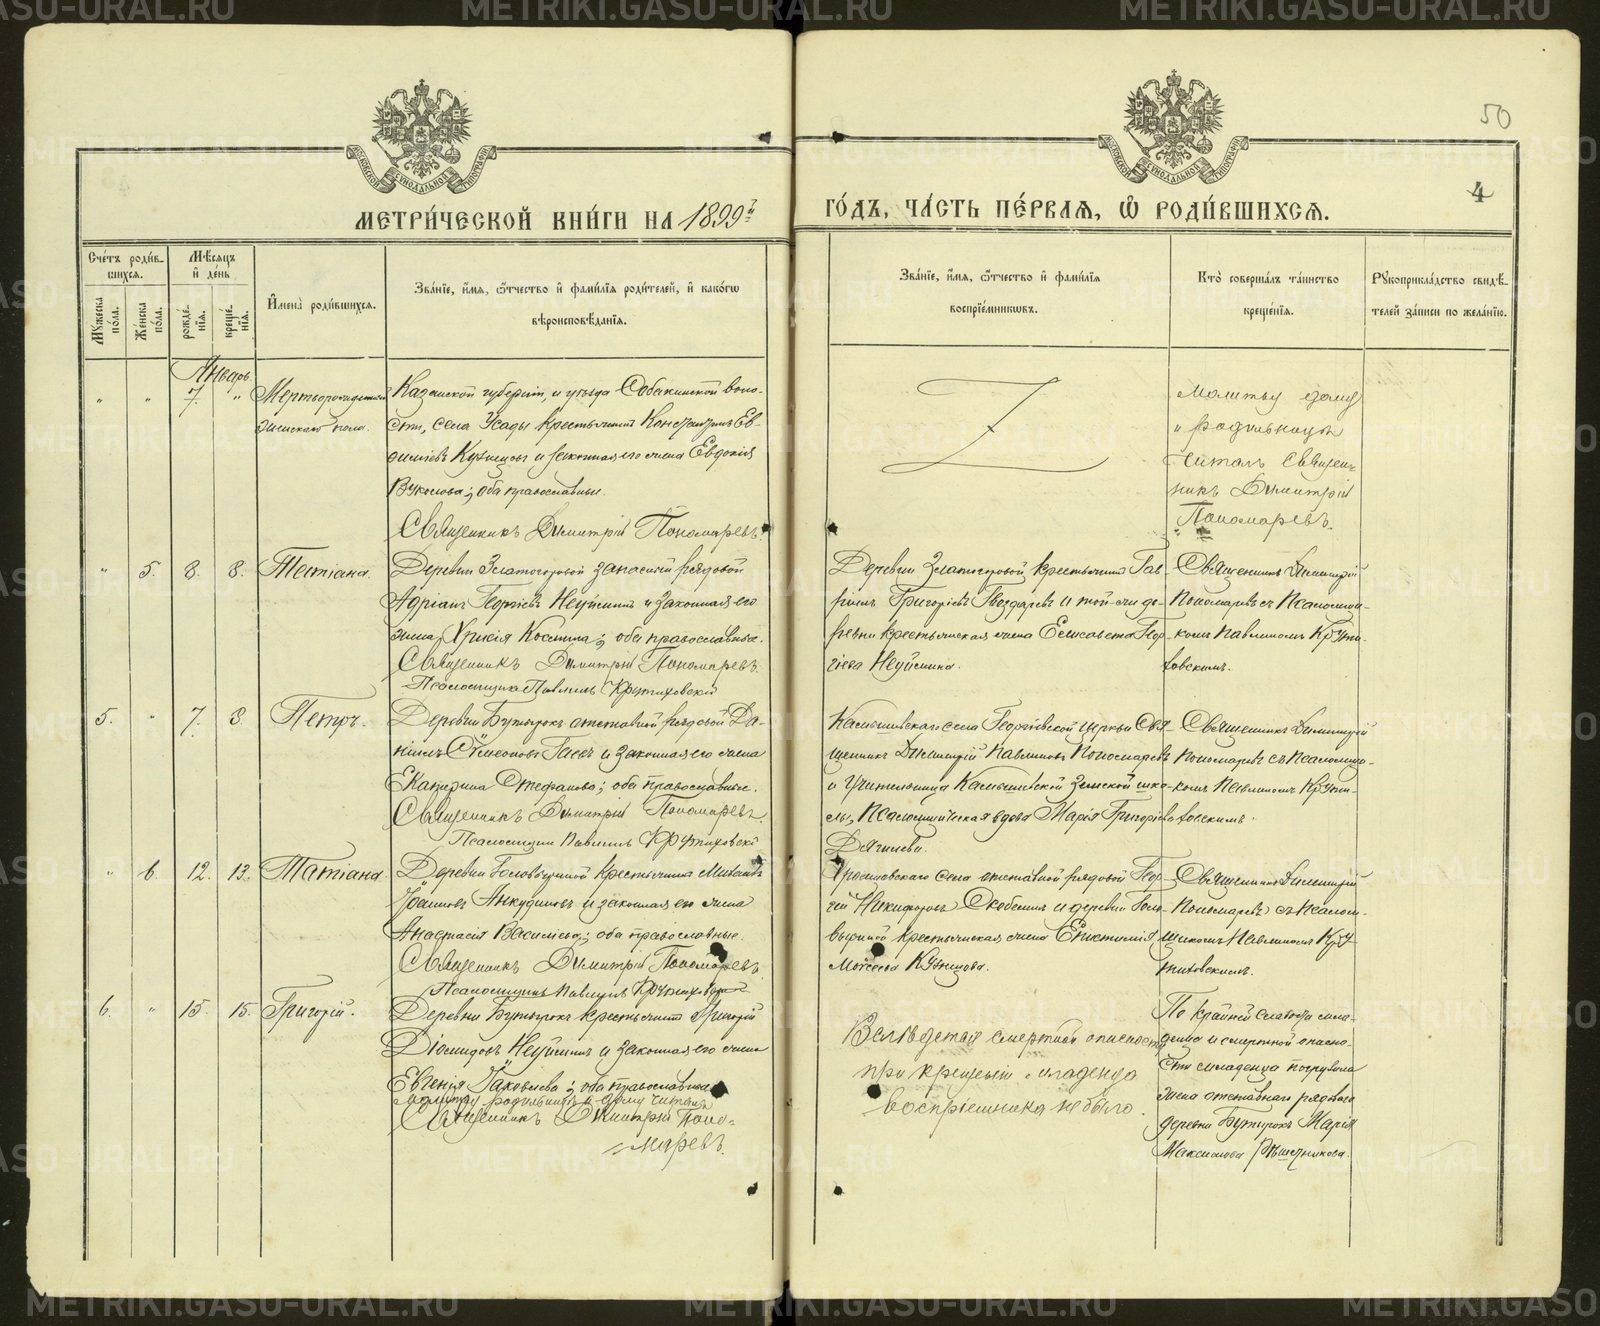 METRIKI.GASU-URAL.RU
50
4
МОСКОВСКОЙ СѴНОДАЛЬНОЙ ТИПОГРАФІИ
МЕТРИ́ЧЕСКОЙ КНИ́ГИ НА 1899й
ГО́ДЪ, ЧА́СТЬ ПЕ́РВАЯ, Ѽ РОДИ́ВШИХСЯ.
Сче́тъ роди́в-
шихся.
Мꙋжеска по́ла.
Же́нска по́ла.
Мѣ́сяцъ
и҆ де́нь
рожде́-
нїя.
креще́-
нїя.
И҆мена̀ роди́вшихся.
Зва́нїе, и҆́мя, ѻ҆́тчество и҆ фами́лїя роди́телей, и҆ како́гѡ
вѣроисповѣ́данїя.
Зва́нїе, и҆́мя, ѻ҆́тчество и҆ фами́лїя
воспрїе́мникѡвъ.
Кто̀ соверша́лъ та́инство
креще́нїя.
Рꙋкоприкла́дство свидѣ́-
телей за́писи по жела́нїю.
Январь.
„ „ 7. „
Мертворожденный
женскаго пола.
Казанской губерніи, и уѣзда Собакинской воло-
сти, села Усады крестьянинъ Константинъ Ев-
фиміевъ Кузнецовъ и законная его жена Евдокія
Вуколова; оба православные.
Священникъ Димитрій Пономаревъ.
Молитву дому
и родильницѣ
читалъ Священ-
никъ Димитрій
Пономаревъ.
„ 5. 8. 8. Татіана.
Деревни Златогоровой запасный рядовой
Адріанъ Георгіевъ Неуйминъ и законная его
жена, Хрисія Космина; оба православные.
Священникъ Димитрій Пономаревъ.
Псаломщикъ Павлинъ Крутиховскій
Деревни Златогоровой крестьянинъ Гав-
ріилъ Григоріевъ Гвоздаревъ и той-же де-
ревни крестьянская жена Елисавета Геор-
гіева Неуймина.
Священникъ Димитрій
Пономаревъ съ Псаломщи-
комъ Павлиномъ Крути-
ховскимъ.
5. „ 7. 8. Петръ.
Деревни Бутырокъ отставной рядовой Да-
ніилъ Сѵмеоновъ Гаевъ и законная его жена
Екатерина Стефанова; оба православные.
Священникъ Димитрій Пономаревъ.
Псаломщикъ Павлинъ Крутиховскій
Камышевскаго села Георгіевской церкви Свя-
щенникъ Димитрій Павлиновъ Пономаревъ
и Учительница Камышевской земской шко-
лы, Псаломщическая вдова Марія Григоріева
Дягилева.
Священникъ Димитрій
Пономаревъ съ Псаломщи-
комъ Павлиномъ Крути-
ховскимъ.
„ 6. 12. 13. Татіана.
Деревни Головыриной крестьянинъ Михаилъ
Іоанновъ Анкудиновъ и законная его жена
Анастасія Васильева; оба православные.
Священникъ Димитрій Пономаревъ.
Псаломщикъ Павлинъ Крутиховскій
села отставной рядовой Геор-
гій Никифоровъ и деревни Голо-
выриной крестьянская жена
Моисеева Кузнецова.
Священникъ Димитрій
Пономаревъ съ Псалом-
щикомъ Павлиномъ Кру-
тиховскимъ.
6. „ 15. 15. Григорій.
Деревни Бутырокъ крестьянинъ Григорій
Діомидовъ Неуйминъ и законная его жена
Евгенія Іаковлева; оба православные
молитву родильницѣ и дому читалъ
Священникъ Димитрій Поно-
маревъ.
Вслѣдствіе смертной опасности
при крещеніи младенца
воспріемника не было.
По крайней слабости мла-
денца и смертной опасно-
сти младенца погружала
жена отставнаго рядоваго
деревни Бутырокъ Марія
Максимова Рѣшетникова.